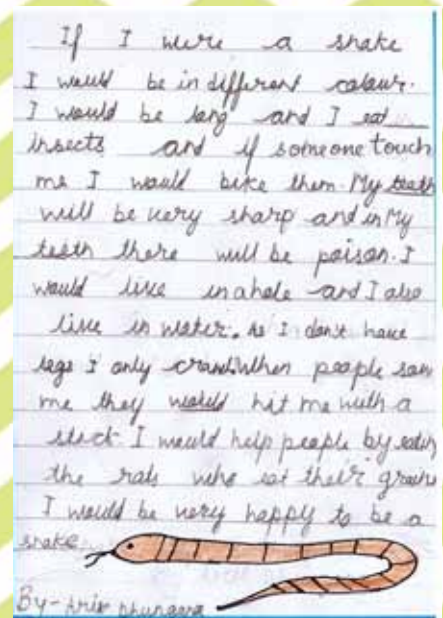 If I were a snake
I would be in different colour.
I would be long and I eat
insects and if someone touch
me I would bite them. My teeth
will be very sharp and in My
teeth there will be poison. I
would live in a hole and I also
live in water. As I don't have
legs I only crawl. When people saw
me they would hit me with a
stick. I would help people by eating
the rats who eat their grains
I would be very happy to be a
snake.
By-